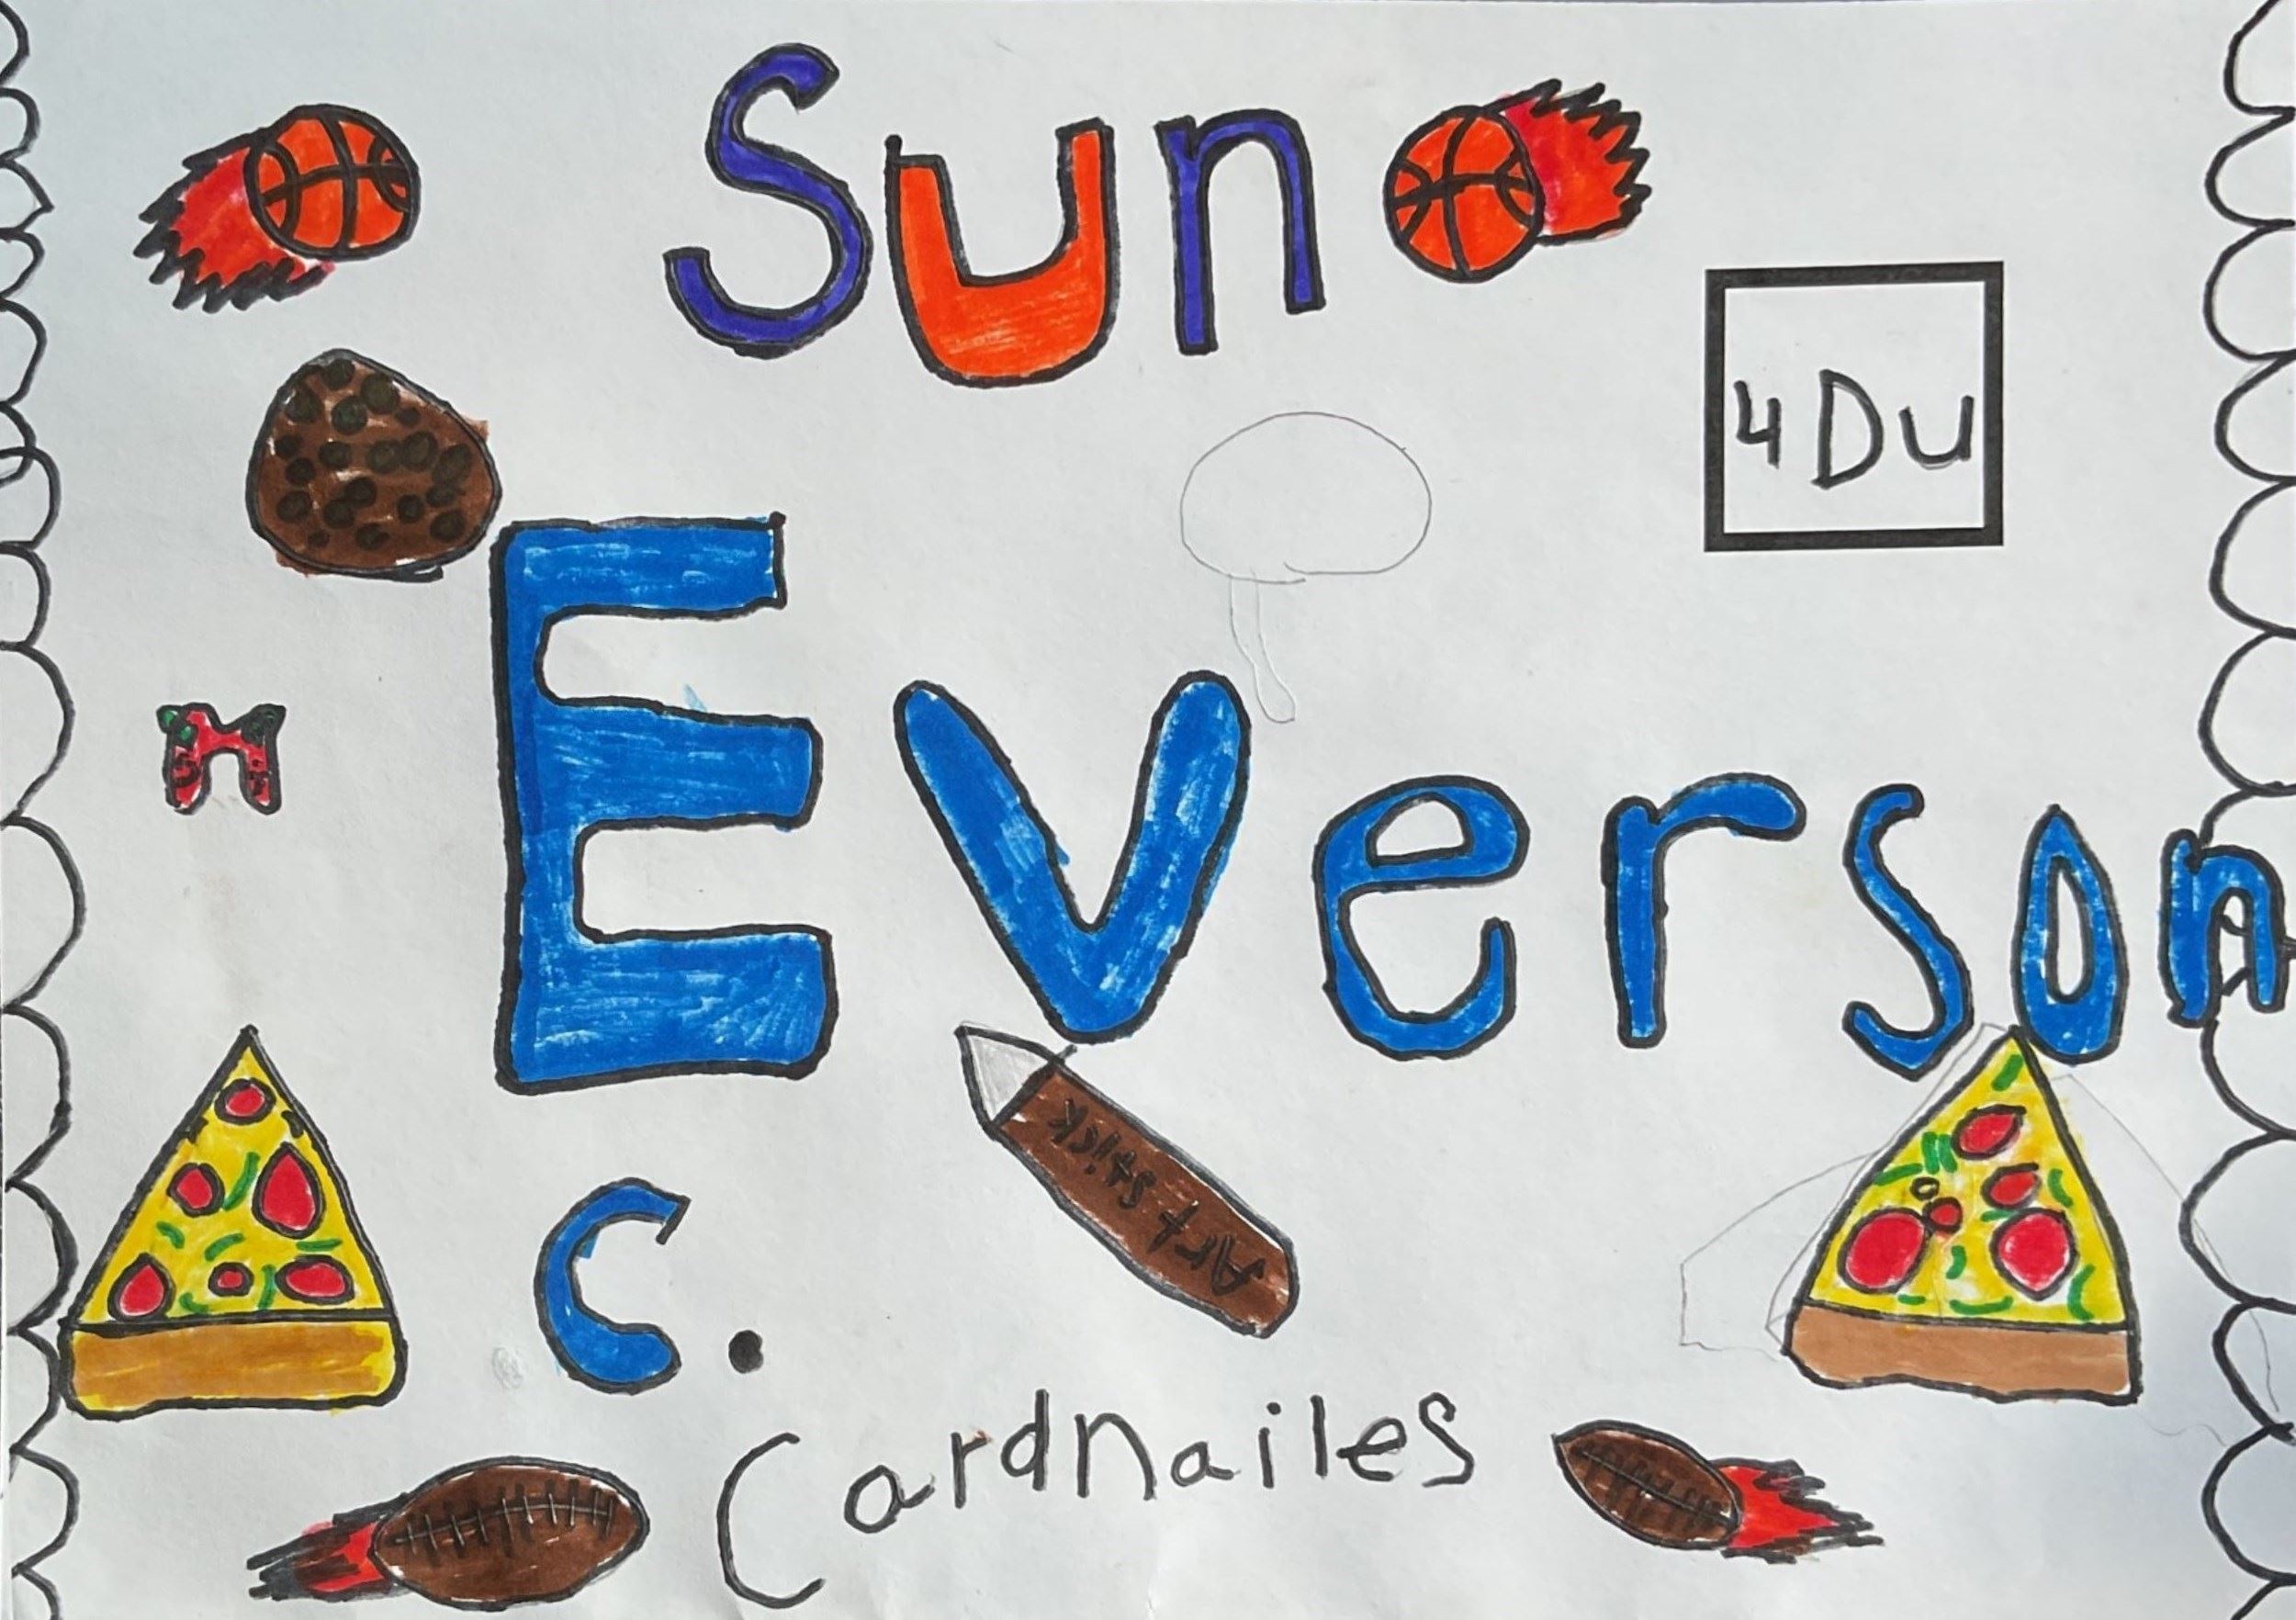 Sun
4Du
Everson
n
Art stick
C.
Cardnailes